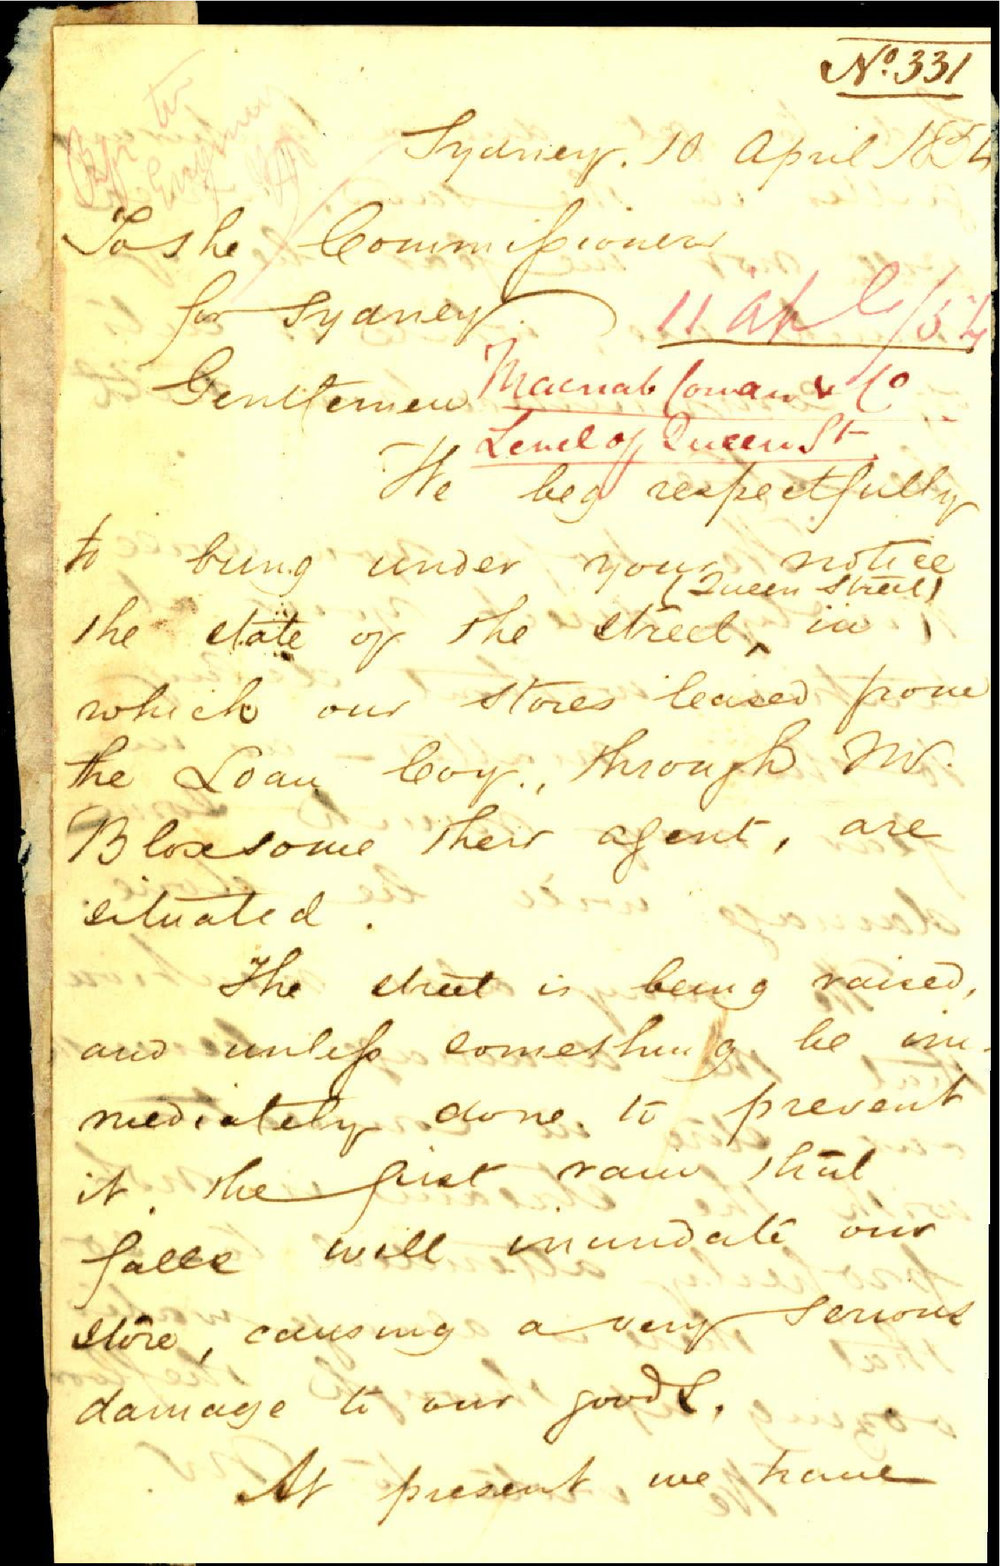 No. 331
Sydney, 10 April 1854
To the Commissioners
for Sydney
11 Apl/54
Gentlemen
Macnab Cowan & Co
Level of Queen St
We beg respectfully
to bring under your notice
(Queen Street)
the state of the street, in
which our stores leased from
the Loan Coy., through Mr.
Bloxsome their agent, are
situated.
The street is being raised,
and unless something be im-
mediately done to prevent
it the first rain that
falls will inundate our
store, causing a very serious
damage to our goods.
At present we have